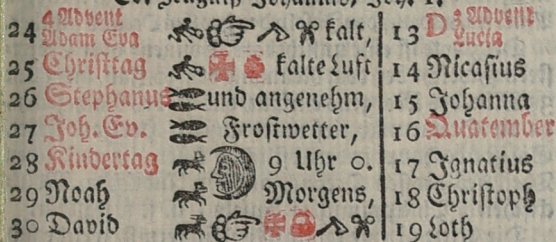 24 4 Advent Adam Eva kalt, 13 D 3 Advent Lucia
25 Christtag kalte Luft 14 Nicasius
26 Stephanus und angenehm, 15 Johanna
27 Joh. Ev. Frostwetter, 16 Quatember
28 Kindertag 9 Uhr 0. 17 Ignatius
29 Noah Morgens, 18 Christoph
30 David 19 Loth